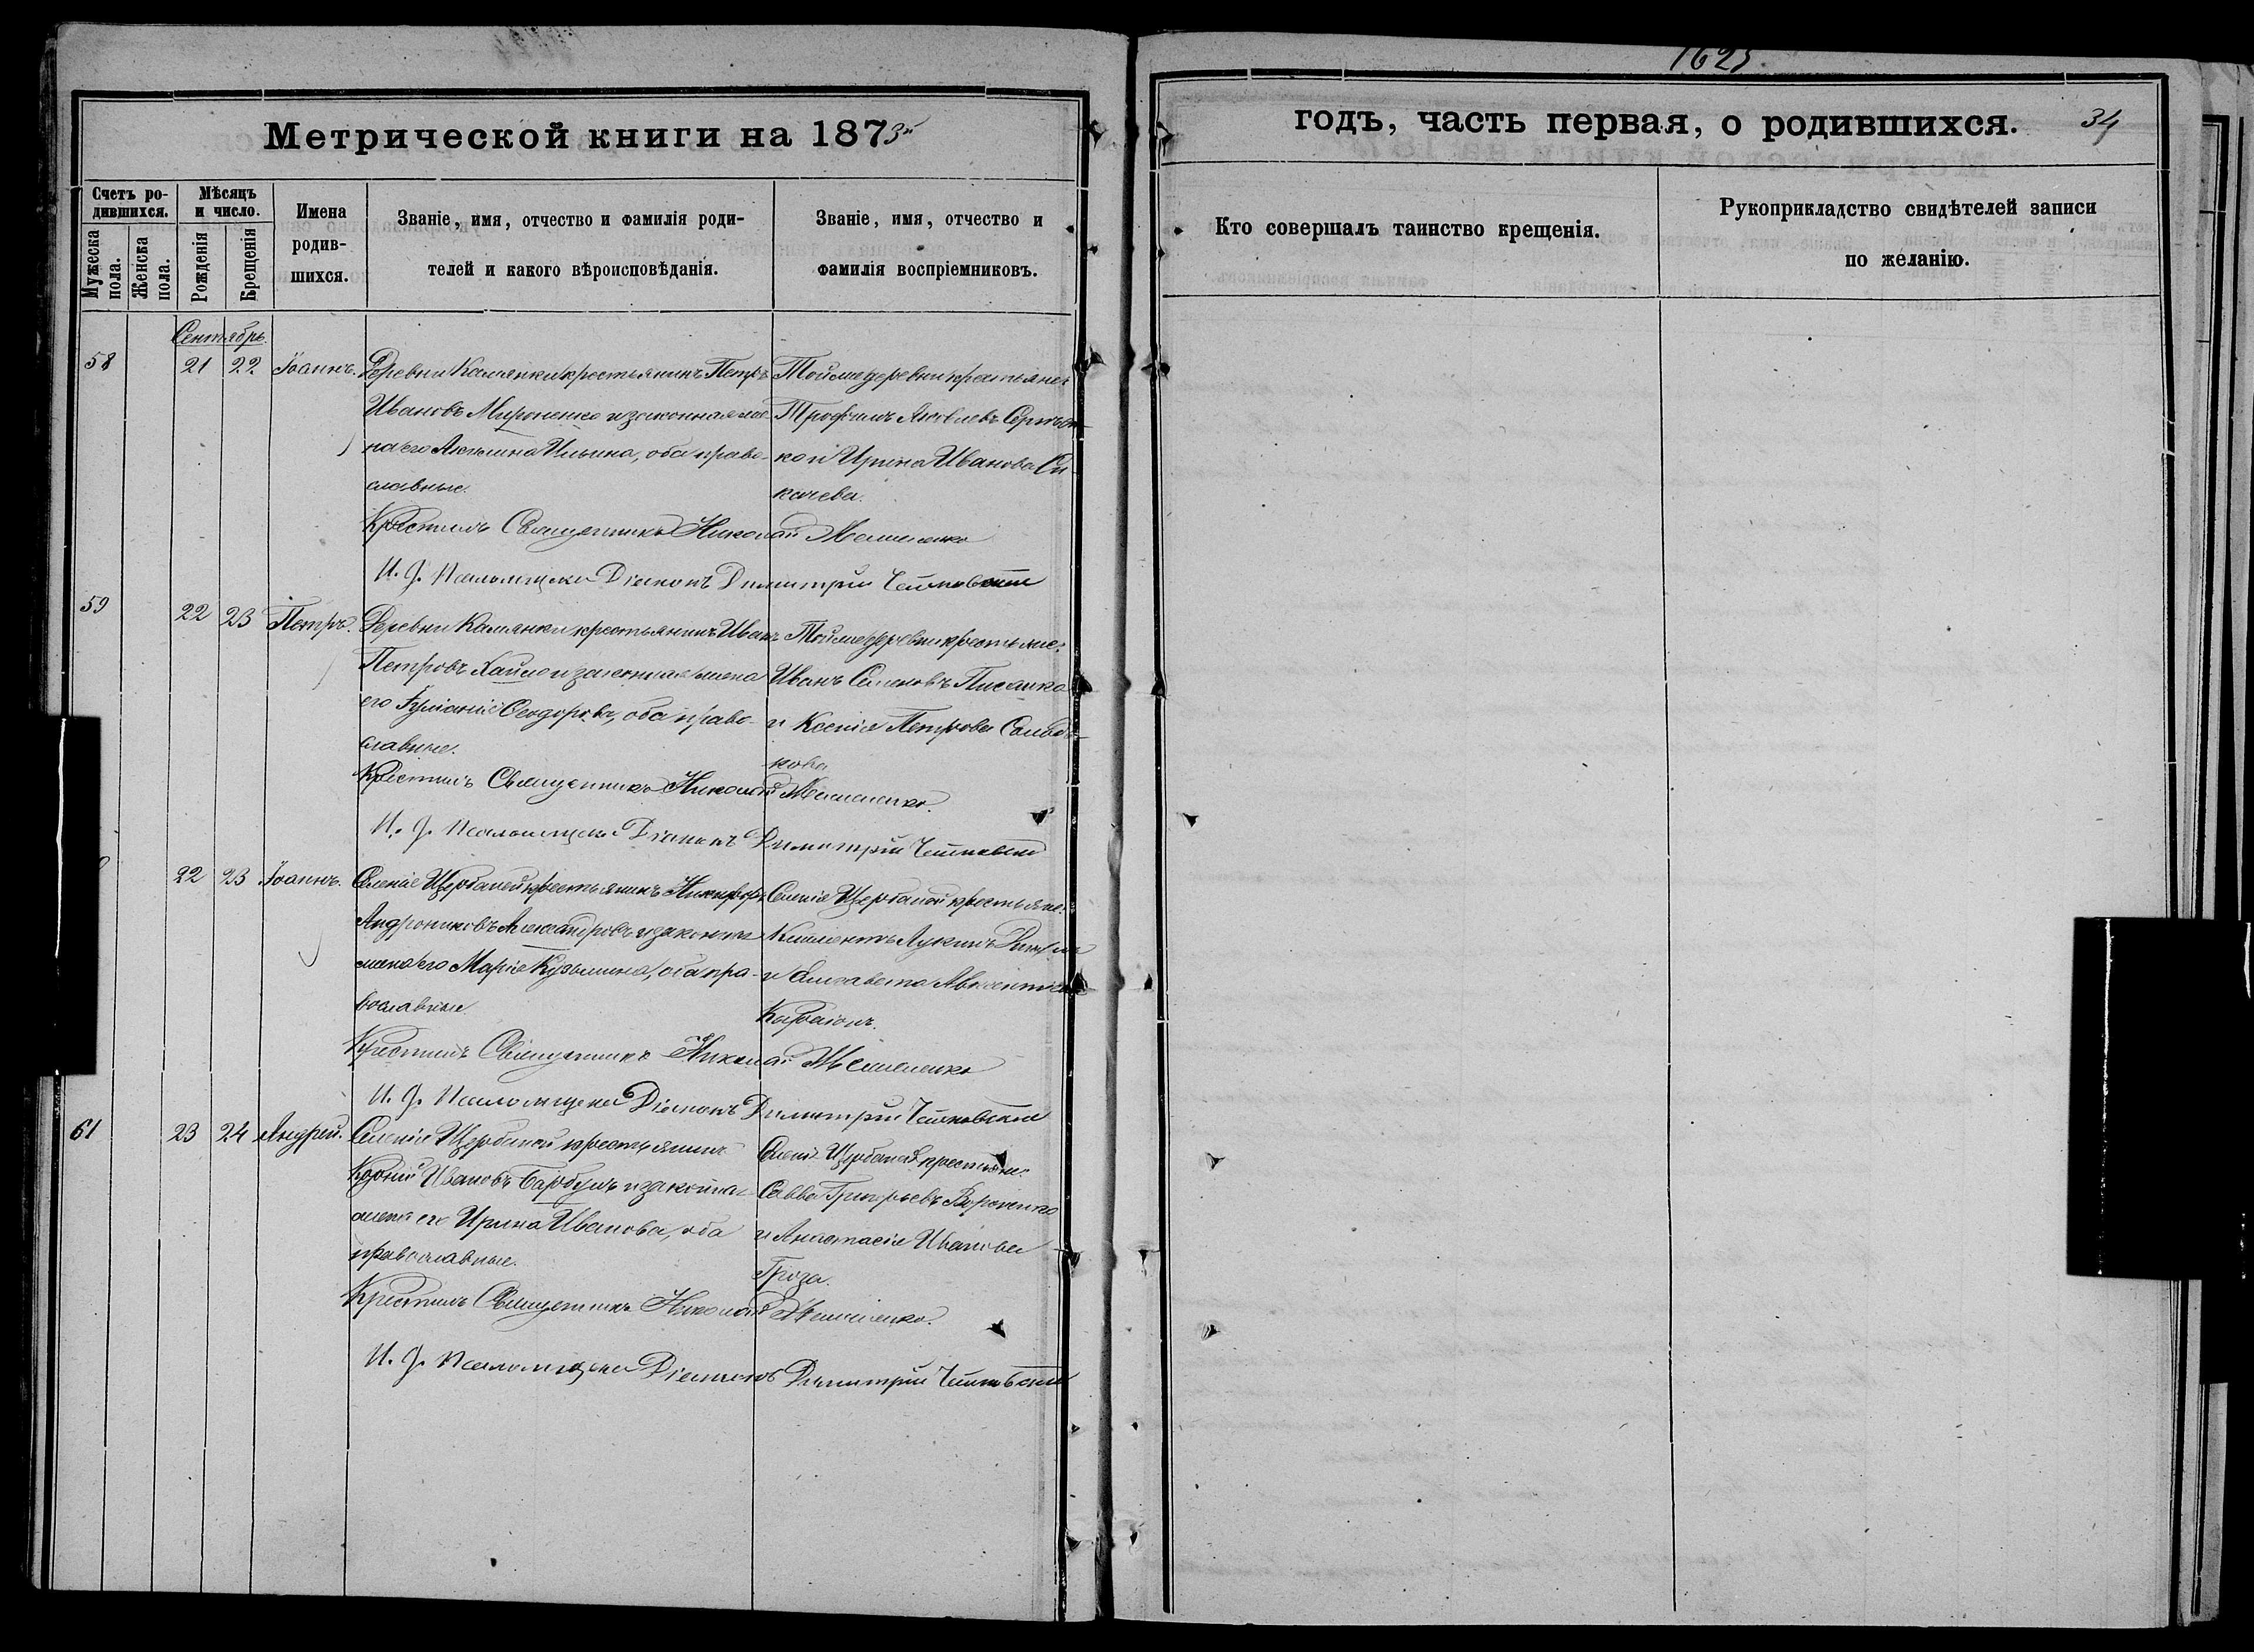 1625.
Метрической книги на 1873й
годъ, часть первая, о родившихся. 34
Счетъ ро-
дившихся.
Мужеска
пола.
Женска
пола.
Мѣсяцъ
и число.
Рожденія
Крещенія
Имена
родив-
шихся.
Званіе, имя, отчество и фамилія роди-
телей и какого вѣроисповѣданія.
Званіе, имя, отчество и
фамилія воспріемниковъ.
Кто совершалъ таинство крещенія.
Рукоприкладство свидѣтелей записи
по желанію.
Сентябрь.
58 21 22 Іоаннъ. Деревни Камянки крестьянинъ Петръ
Ивановъ Мироненко и законная же-
на его Ильина, оба право-
славные.
Той же деревни крестьяне:
Трофимъ Яковлевъ
ко и Ирина Иванова
Крестилъ Священникъ Николай
И. д. Псаломщика Діаконъ Димитрій
59 22 23 Петръ. Деревни Камянки крестьянинъ Иванъ
Петровъ и законная жена
его Ѳеодорова, оба право-
славные.
Той же деревни крестьяне:
Иванъ Семеновъ Писанка
и Ксенія Петрова
кова
Крестилъ Священникъ Николай
И. д. Псаломщика Діаконъ Димитрій
22 23 Іоаннъ. Селенія Щербаней крестьянинъ Никифоръ
Андрониковъ Александровъ и законная
жена его Марія Кузьмина, оба пра-
вославные.
Селенія Щербаней крестьяне:
Климентъ Лукинъ
и Елисавета
Крестилъ Священникъ Николай
И. д. Псаломщика Діаконъ Димитрій
61 23 24 Андрей. Селенія Щербаней крестьянинъ
Ивановъ и законная
жена его Ирина Иванова, оба
православные.
Селенія Щербаней крестьяне:
Савва Григорьевъ Вороненко
и Анастасія Иванова
Гроза.
Крестилъ Священникъ Николай
И. д. Псаломщика Діаконъ Димитрій